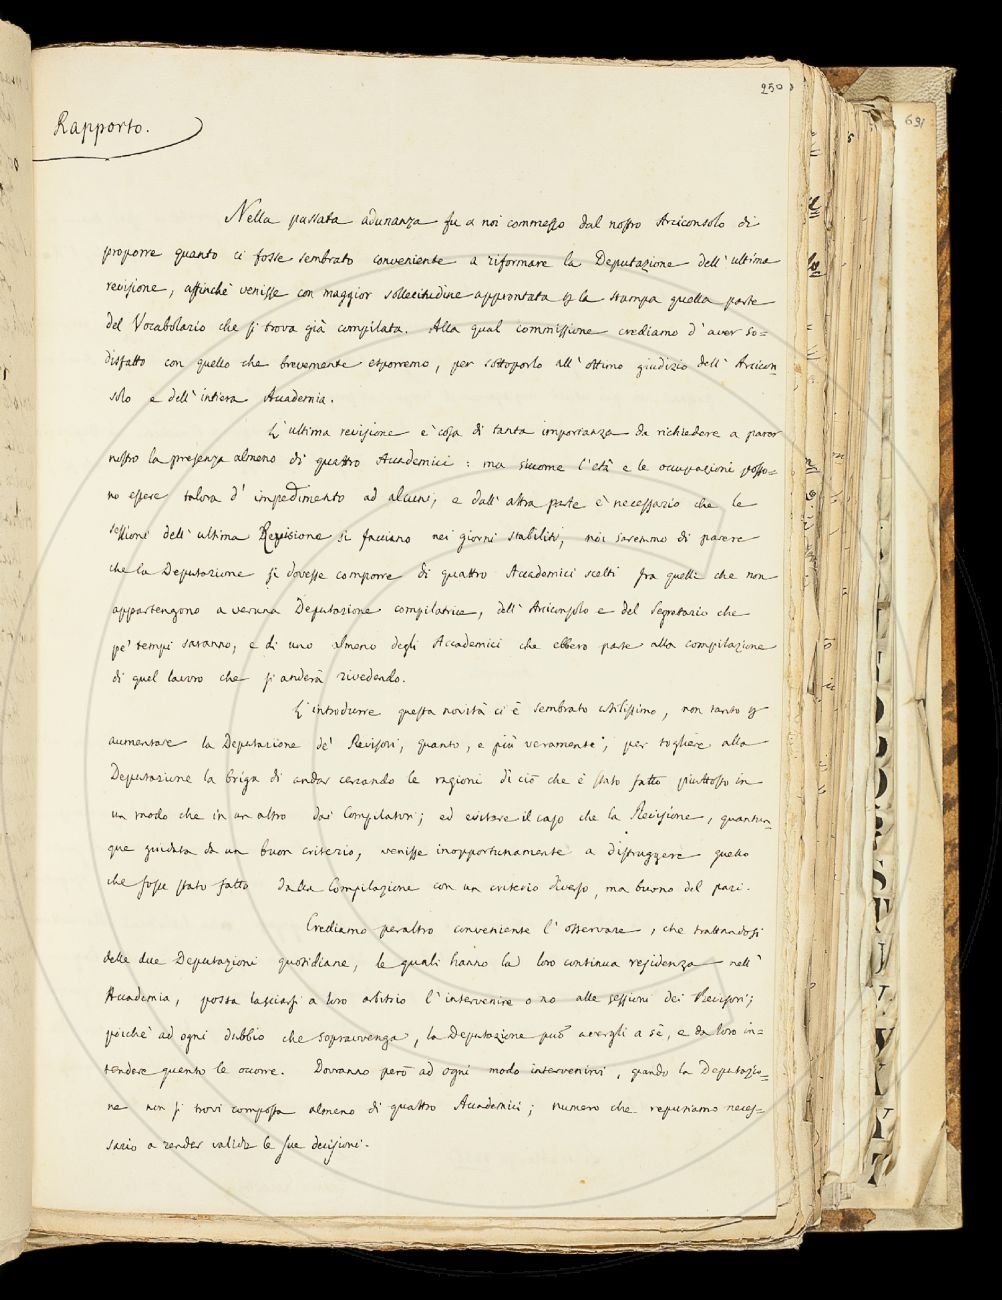 250
691
Rapporto.
Nella passata adunanza fu a noi commesso dal nostro Arciconsolo di
proporre quanto ci fosse sembrato conveniente a riformare la Deputazione dell' ultima
revisione, affinchè venisse con maggior sollecitudine approntata p la stampa quella parte
del Vocabolario che si trova già compilata. Alla qual commissione crediamo d'aver so=
disfatto con quello che brevemente esporremo, per sottoporlo all' ottimo giudizio dell' Arcicon
solo e dell' intiera Accademia.
L' ultima revisione è cosa di tanta importanza da richiedere a parer
nostro la presenza almeno di quattro Accademici: ma siccome l'età e le occupazioni posso=
no essere talora d' impedimento ad alcuni, e dall' altra parte è necessario che le
sessioni dell' ultima Revisione si facciano nei giorni stabiliti, noi saremmo di parere
che la Deputazione si dovesse comporre di quattro Accademici scelti fra quelli che non
appartengono a veruna Deputazione compilatrice, dell' Arciconsolo e del Segretario che
pe' tempi saranno, e di uno almeno degli Accademici che ebbero parte alla compilazione
di quel lavoro che si anderà rivedendo.
L' introdurre questa novità ci è sembrato utilissimo, non tanto p
aumentare la Deputazione de' Revisori, quanto, e più veramente, per togliere alla
Deputazione la briga di andar cercando le ragioni di ciò che è stato fatto piuttosto in
un modo che in un altro dai Compilatori; ed evitare il caso che la Revisione, quantun=
que guidata da un buon criterio, venisse inopportunamente a distruggere quello
che fosse stato fatto dalla Compilazione con un criterio diverso, ma buono del pari.
Crediamo peraltro conveniente l' osservare, che trattandosi
delle due Deputazioni quotidiane, le quali hanno la loro continua residenza nell'
Accademia, possa lasciarsi a loro arbitrio l' intervenire o no alle sessioni dei Revisori;
poichè ad ogni dubbio che sopravvenga, la Deputazione può avergli a sè, e da loro in=
tendere quento le occorre. Dovranno però ad ogni modo intervenirvi, quando la Deputazio=
ne non si trovi composta almeno di quattro Accademici; numero che reputiamo neces=
sario a render valide le sue decisioni.